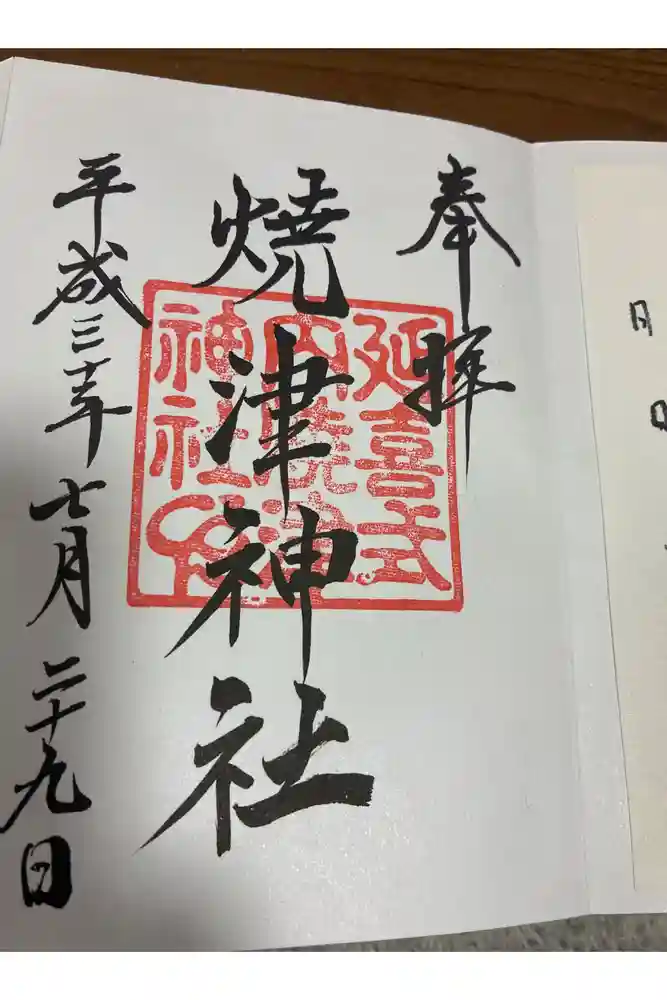 奉拝
焼津神社
平成三十年七月二十九日
延喜式
内焼津
神社印